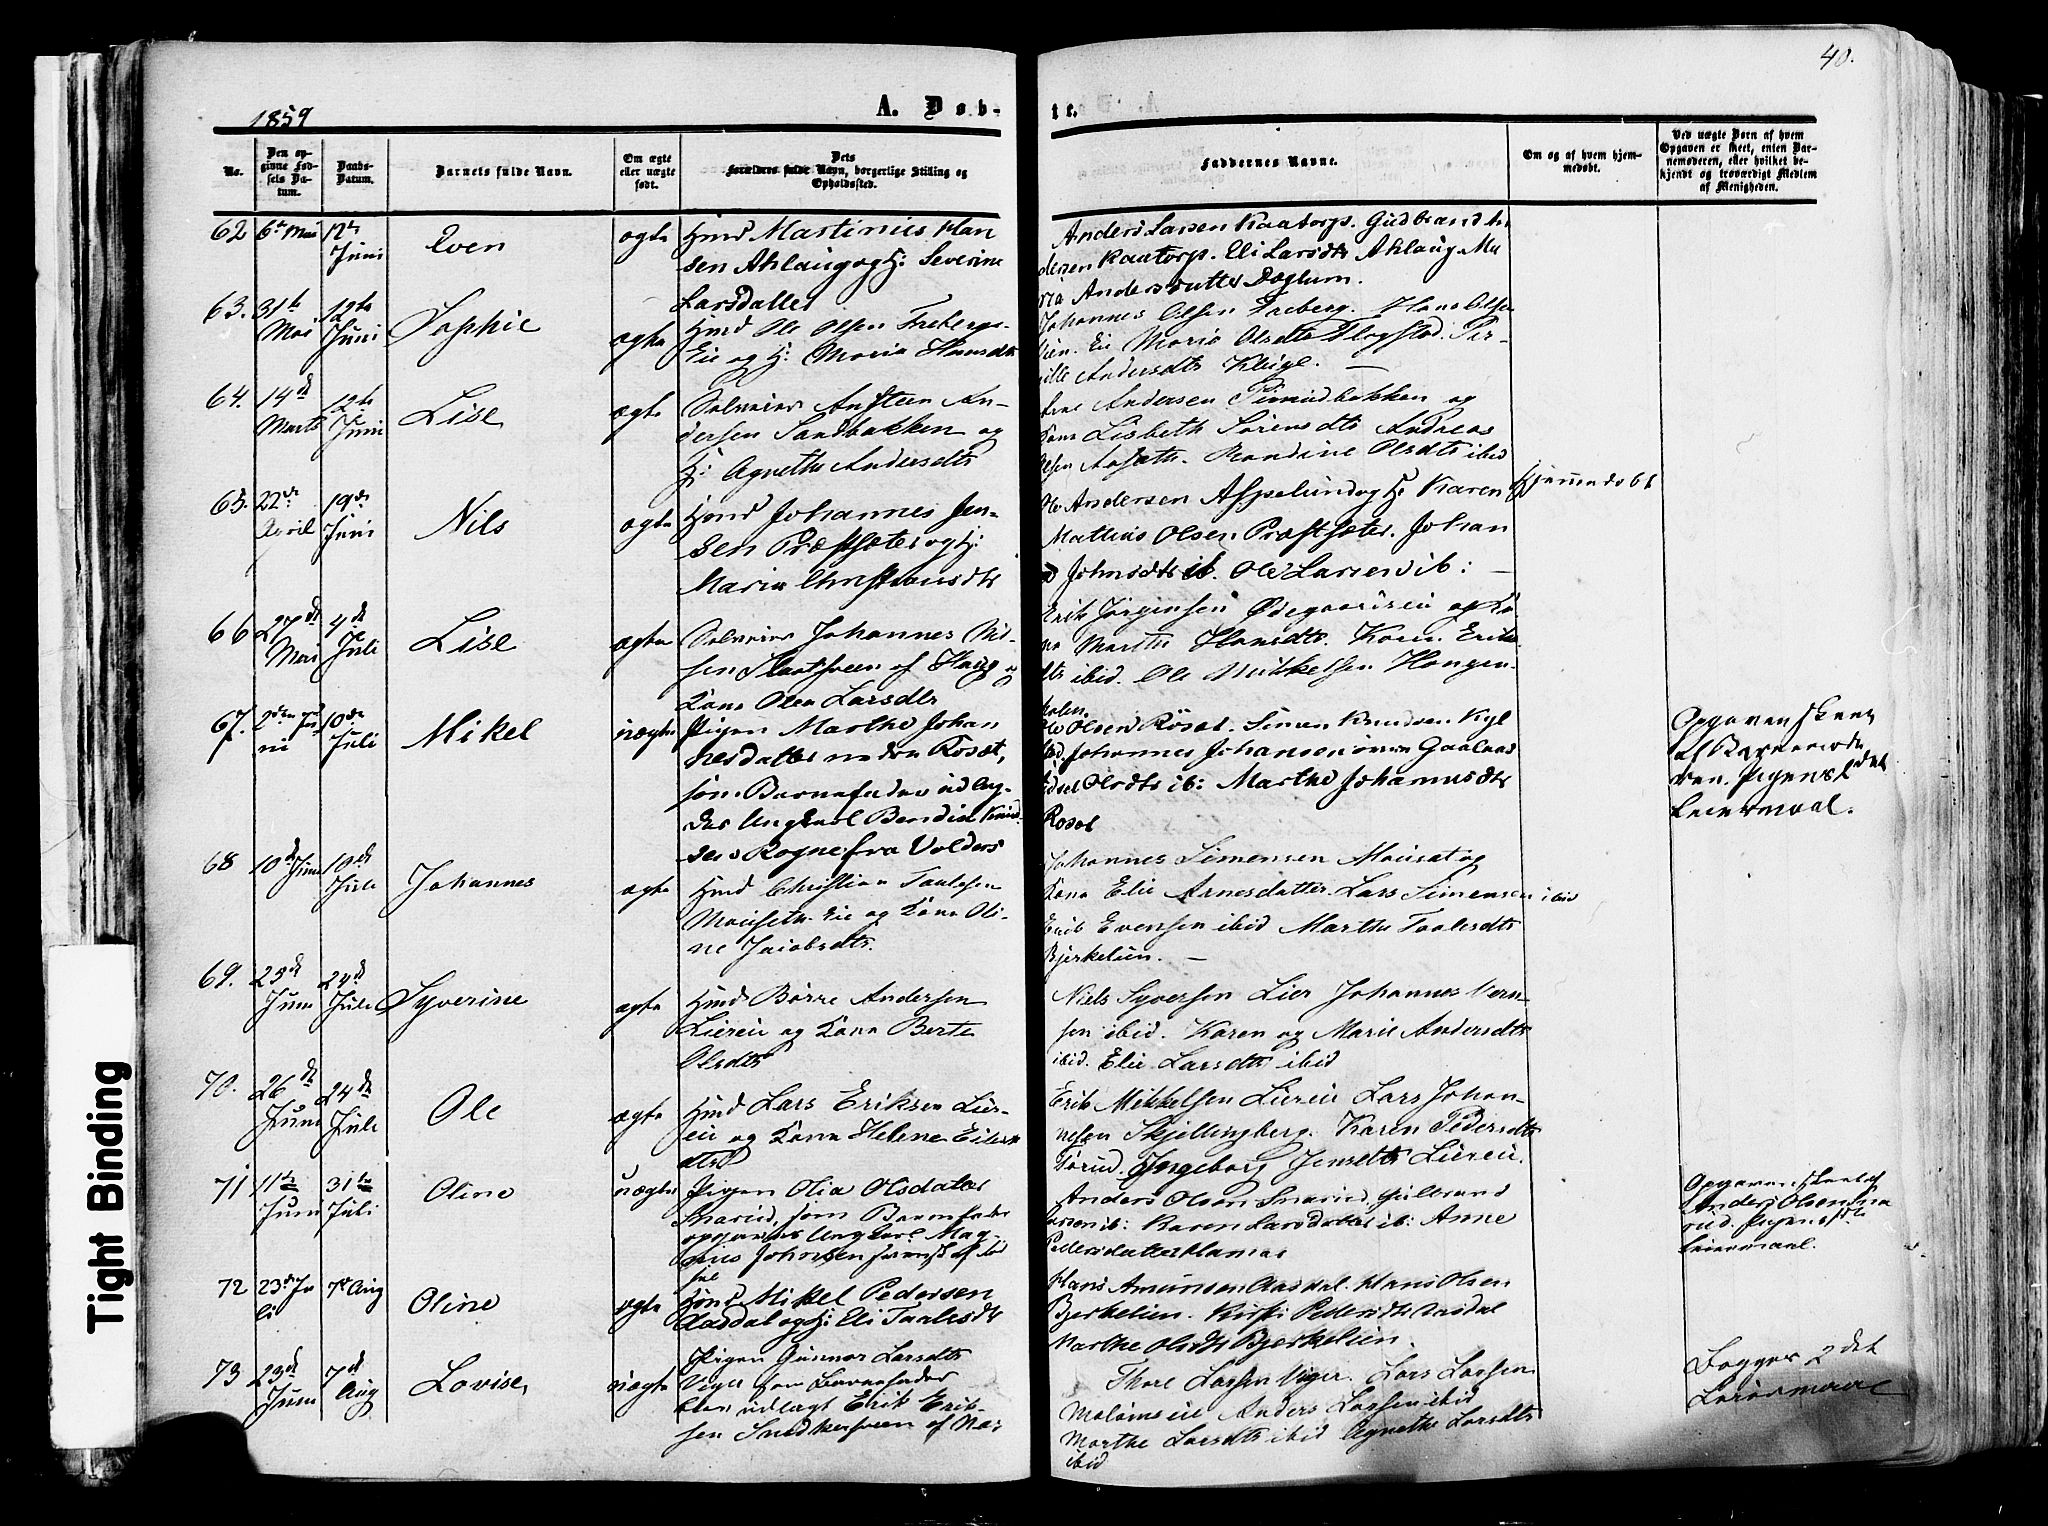 40.
1859
A. Døb-
te.
No.
Den opgivne Fødsels Datum.
Daabs-Datum.
Barnets fulde Navn.
Om ægte eller uægte født.
Forældres fulde Navn, borgerlige Stilling og Opholdssted.
Faddernes Navne.
Om og af hvem hjemmedøbt.
Ved uægte Børn af hvem Opgaven er skeet, enten Barnemoderen, eller hvilket bekjendt og troværdigt Medlem af Menigheden.
62 6te Mai 12te Juni Even ægte Hmd Martinius Han
sen Ahlaug og H: Severine
Larsdatter
Anders Larsen Kaatorp. Gudbrand An
dersen Kaatorp. Eli Larsdtr Ahlaug. Ma
ria Andersdatter Dæhlum.
63. 31te Mai 12te Juni Sophie ægte Hmd Ole Olsen Freberg-
Eie og H: Maria Hansdtr
Johannes Olsen Freberg. Hans Olsen
Marie Olsdtr Flagstad. Per-
nille Andersdtr Kluge. —
64. 14de Marts 12te Juni Lise ægte Selveier Austeen An-
dersen Sandbakken og
H: Agnethe Andersdtr
Arne Andersen og
Kone Lisbeth Sørensdtr Andreas
Olsen Aaseth. Randine Olsdtr ibid
65. 22de April 19de Juni Nils ægte Hmd Johannes Jen-
sen Præstsæter og H:
Maria Christiansdtr
Ole Andersen Aspelund og H: Karen
Mathias Olsen Præstsæter. Johan
Johnsdtr ib. Ole Larsen ib: —
Hjemmedøbt
66 27de Mai 4de Juli Lise ægte Selveier Johannes Nil-
sen af Haug og
Kone Olea Larsdtr
Erik Jørgensen Ødegaardseie og Ko
ne Marthe Hansdtr. Karen Eriks
dtr ibid. Ole Mikkelsen Haugen-
67. 2den Juni 10de Juli Mikel uægte Pigen Marthe Johan
nesdatter nedre Rosæt,
som Barnefader udlag-
des Ungkarl Bendix Knud
sen Rogne fra Valders
Ole Olsen Røset. Simen Knudsen Kyl
stad. Johannes Johansen øvre Gaalaas
Sidsel Olsdtr ib: Marthe Johannesdtr
Rosæt
Opgaven skeet
af Barnemode
ren. Pigens 1ste
Leiermaal.
68 10de Juni 10de Juli Johannes ægte Hmd Christian Taalesen
Mauseth-Eie og Kone Oli-
ne Jacobsdtr.
Johannes Simensen Mauset og
Kone Elie Arnesdatter. Lars Simensen ibid
Erik Evensen ibid Marthe Taalesdtr
Bjerkelien. —
69. 25de Juni 24de Juli Syverine ægte Hmd Børre Andersen
Liereie og Kone Berte
Olsdtr
Niels Syversen Lier Johannes Iver-
sen ibid. Karen og Marie Andersdtr
ibid. Elie Larsdtr ibid
70. 26de Juni 24de Juli Ole ægte Hmd Lars Eriksen Lier-
eie og Kone Helene Eilerts
dtr
Erik Mikkelsen Liereie Lars Johan-
nesen Skjellingberg. Karen Pedersdtr
Ingeborg Jensdtr Liereie.
71 11te Juni 31te Juli Oline uægte Pigen Olia Olsdatter
Snarud, som Barnefader
opgaves Ungkarl Mag-
nus Johnsen
Anders Olsen Snarud. Gulbrand
Larsen ib: Karen Larsdatter ib: Anne
Pedersdatter Hamar
Opgaven skeet af
Anders Olsen Sna
rud. Pigens 1ste
Leiermaal.
72 23de Juli 7de Aug Oline ægte Hmd Mikel Pedersen
Aasdal og H: Eli Taalesdtr
Hans Amundsen Aasdal. Hans Olsen
Bjerkelien. Kirsti Pedersdtr Aasdal
Marthe Olsdtr Bjerkelien.
73 23de Juni 7de Aug Lovise, uægte Pigen Gunnor Larsdtr
Viger som Barnefader
blev udlagt Erik Erik-
sen Snedkersveen af Næs
Thore Larsen Viger. Lars Larsen
Anders Larsen ibid
Marthe Larsdtr ibid Agnethe Larsdtr
ibid
Begges 2det
Leiermaal
Tight Binding